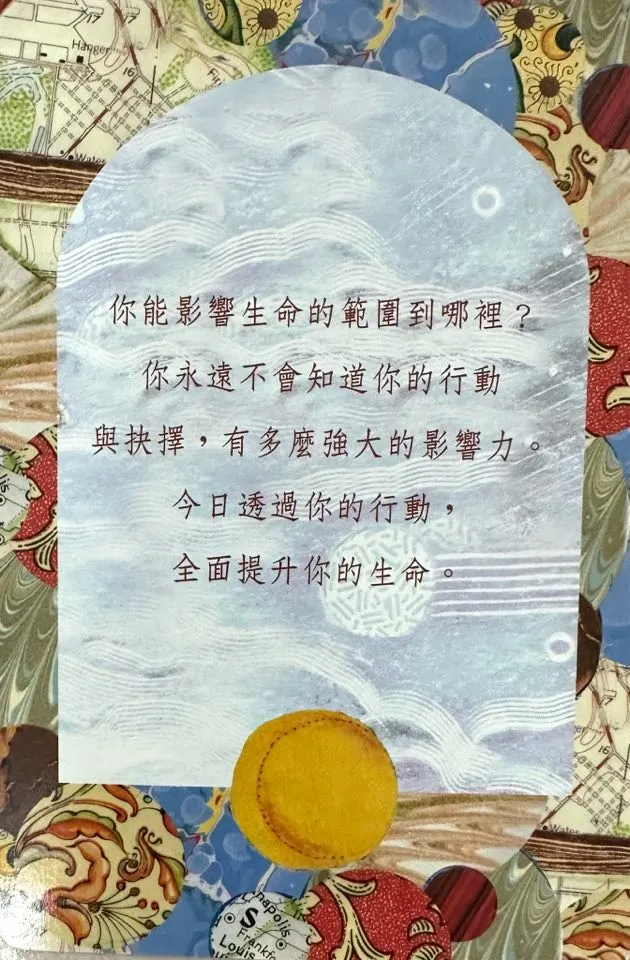 你能影響生命的範圍到哪裡？
你永遠不會知道你的行動
與抉擇，有多麼強大的影響力。
今日透過你的行動，
全面提升你的生命。
Hanger
17
17
16
Water
17
16
Water
S
napolis
Frankfo
Louis